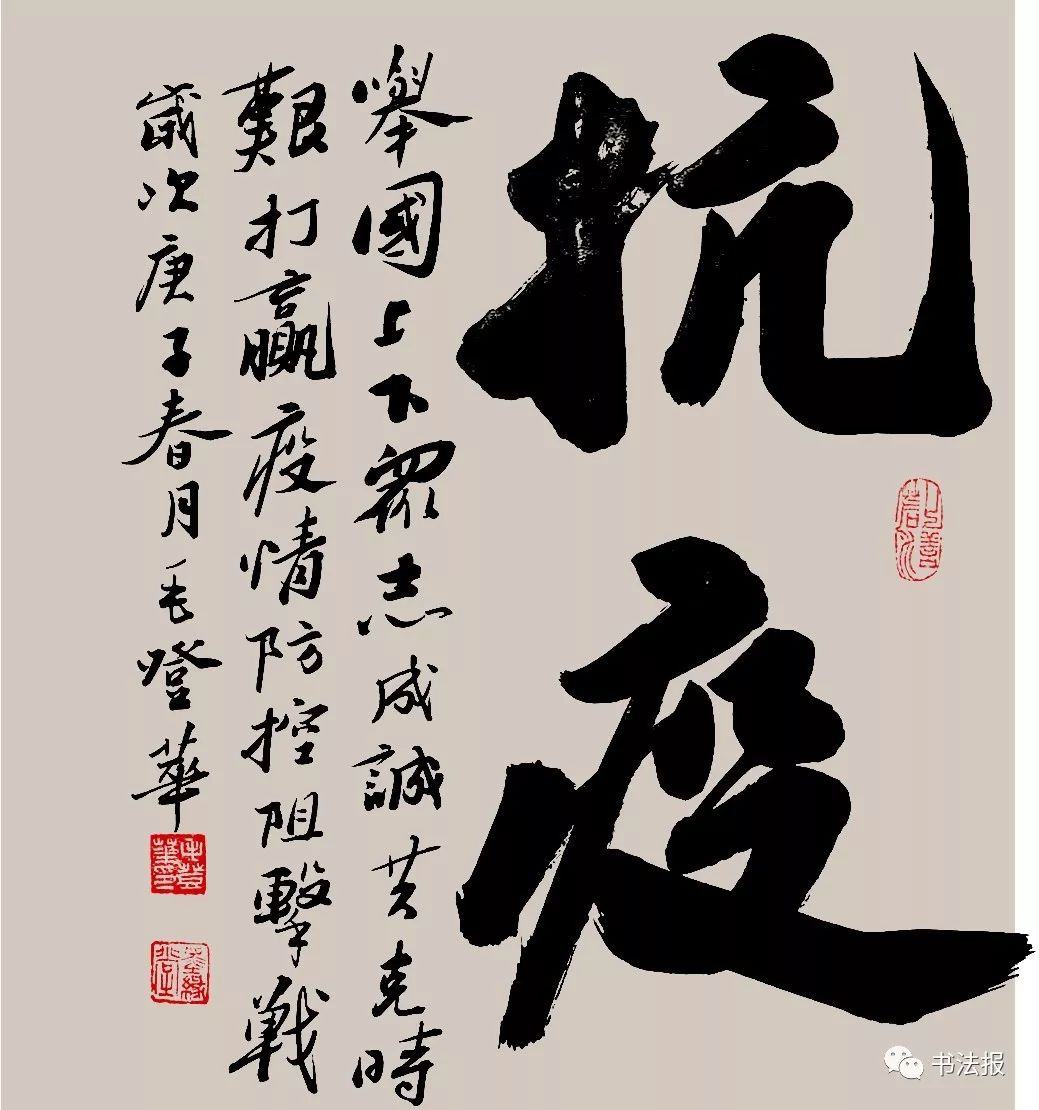 抗疫
上善若水
舉國上下眾志成誠共克時
艱打贏疫情防控阻擊戰
歲次庚子春月毛燈華
书法报